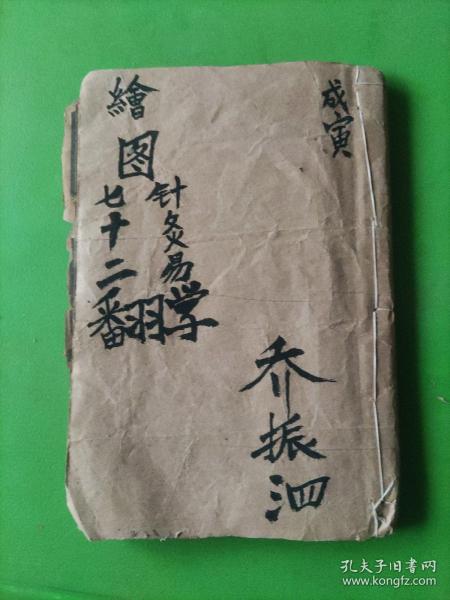 成寅
繪图
针灸易学
七十二翻
乔振泗
孔夫子旧书网
www.kongfz.com